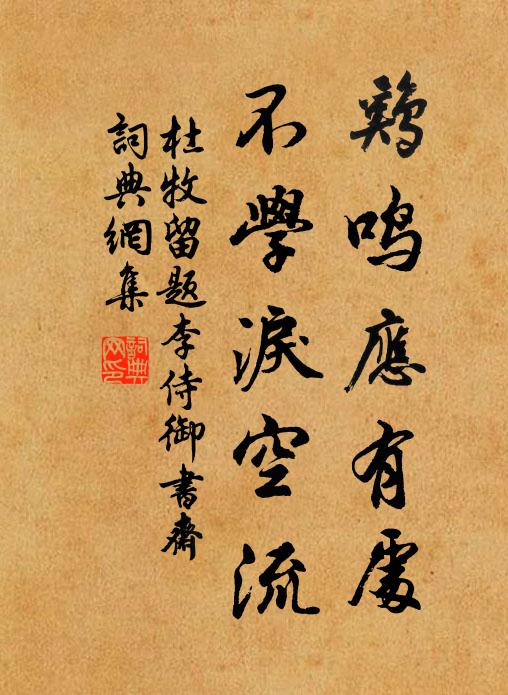 鷄鳴應有處
不學淚空流
杜牧留題李侍御書齋
詞典網集
詞典網印